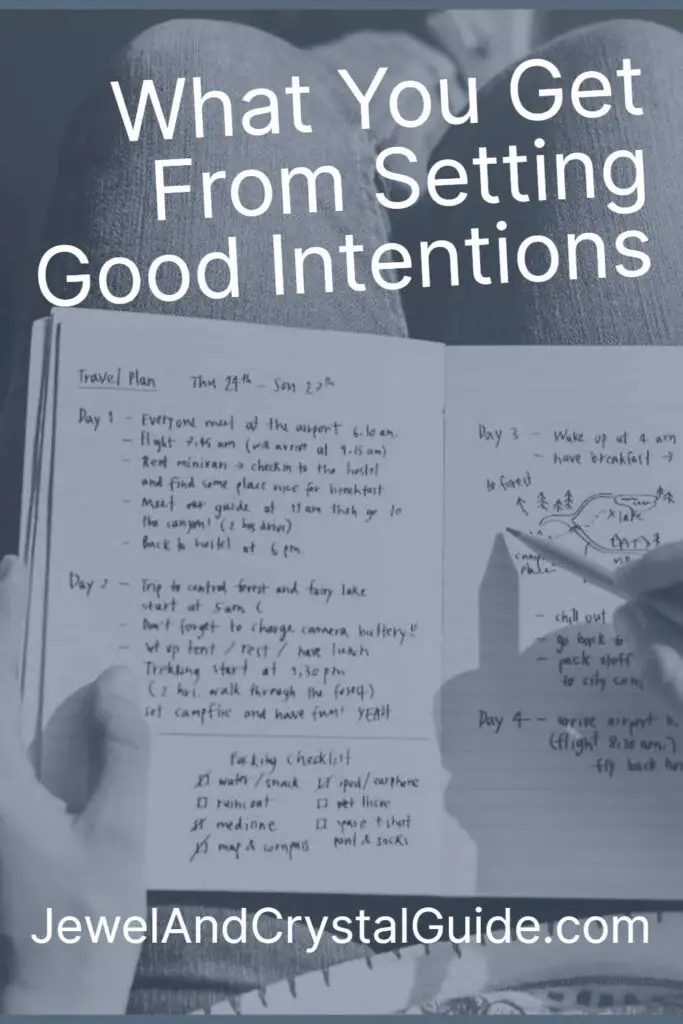 What You Get
From Setting
Good Intentions
Travel Plan Thu 24th - Sun 27th
Day 1 - Everyone meet at the airport 6.10 am.
- flight 7.45 am (will arrive at 9.15 am)
- Rent minivan → checkin to the hostel
and find some place nice for breakfast
- Meet our guide at 11 am then go to
the canyon! (2 hrs drive)
- Back to hostel at 6 pm.
Day 2 - Trip to central forest and fairy lake
start at 5 am
- Don't forget to charge camera battery!!
- set up tent / rest / have lunch
- Trekking start at 1.30 pm
(2 hrs. walk through the forest)
set campfire and have fun! YEAH
Packing checklist
water / snack ipod / earphone
raincoat
medicine spare t shirt
map & compass pant & socks
Day 3 - Wake up at 4 am
- have breakfast →
to forest
x lake
- chill out
- go back to
- pack stuff
to city
Day 4 - arrive airport
(flight 8.30 am.)
fly back
JewelAndCrystalGuide.com